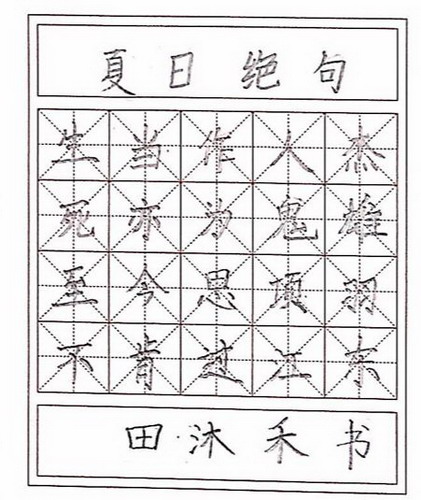 夏日绝句
生当作人杰
死亦为鬼雄
至今思项羽
不肯过江东
田沐禾书